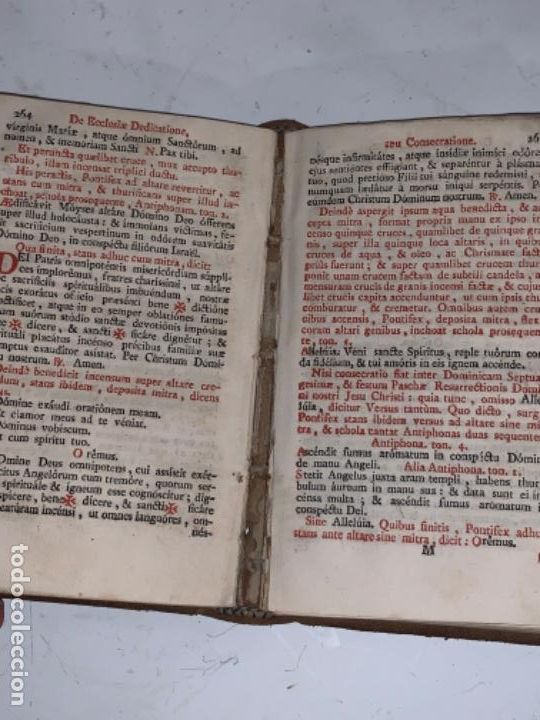 264 De Ecclesiæ Dedicatione,
virginis Mariæ, atque ómnium Sanctórum, ad
nomen, & memóriam Sancti N. Pax tibi.
Et peruncta quælibet cruce, mox accepto thu
ribulo, illam incensat triplici ductu.
His peractis, Pontifex ad altare revertitur, ac
stans cum mitra, & thurificans super illud in
schola prosequente, Antiphonam. ton. 2.
Ædificávit Móyses altáre Dómino Deo ófferens
super illud holocáusta & ímmolans víctimas, fe-
sacrifícium vespertínum in odórem suavitátis
Dómino Deo, in conspéctu filiórum Israël.
Qua finita, stans adhuc cum mitra, dicit:
DEI Patris omnipoténtis misericórdiam súppli-
ces implorémus, fratres charíssimi, ut altáre
sacrifíciis spirituálibus imbuéndum, nostræ
cis exorátus offício præsénti bene ✠
díctificet, atque in eo semper oblatiónes famu
suórum stúdio sanctæ devotiónis impósitas
✠ dícere, & sancti ✠ ficáre dignétur; &
rituáli placátus incénso précibus famíliæ suæ
mptus exaudítor assístat. Per Christum Dómi-
nostrum. ℟. Amen.
Deindè benedicit incensum super altare cre-
dum, stans ibidem, deposita mitra, dicens
Dómine exáudi oratiónem meam.
Et clamor meus ad te véniat.
Dóminus vobíscum.
Et cum spíritu tuo.
Orémus.
Dómine Deus omnípotens, cui assístit exér-
citus Angelórum cum tremóre, quorum ser-
spirituále & ígneum esse cognóscitur; dig-
spícere, bene ✠ dícere, & sancti ✠ ficáre
eatúram incénsi, ut omnes languóres, om-
nés-
seu Consecratione. 26
nésque infirmitátes, atque insídiæ inimíci odórem
ejus sentiéntes effúgiant, & separéntur à plásma
tuo, quod pretióso Fílii tui sánguine redemísti, ut
numquam lædátur à morsu iníqui serpéntis. Pe
eúmdem Christum Dóminum nostrum. ℟. Amen.
Deindè aspergit ipsum aqua benedicta, & ac
cepta mitra, format propria manu ex ipso in
censo quinque cruces, quamlibet de quinque granis
incensi, super quinque loca altaris, in quibus cruces
de aqua, & oleo, ac Chrismate fecit
priùs fuerunt; & super quamlibet crucem incensi
ponit unam crucem factam de subtili candela, ad
mensuram crucis de granis incensi factæ, & cujus
libet crucis capita accenduntur, ut cum ipsis thus
comburatur, & cremetur. Omnibus autem crucibus
accensis, Pontifex, deposita mitra, flexis
coram altari genibus, inchoat schola prosequen-
te, ton. 4.
Allelúia. Veni sancte Spíritus, reple tuórum corda
fidélium, & tui amóris in eis ignem accénde.
Nisi consecratio fiat inter Dominicam Septua-
gesimæ, & festum Paschæ Resurrectionis Domi-
ni nostri Jesu Christi: quia tunc, omisso Alle-
lúia, dicitur Versus tantùm. Quo dicto, surgit
Pontifex stans ibidem versus ad altare sine mitra,
& schola cantat Antiphonas duas sequentes
Antiphona. ton. 4.
Ascéndit fumus arómatum in conspéctu Dómini
de manu Angeli. Alia Antiphona. ton. 1.
Stetit Angelus juxta aram templi, habens thurí-
bulum áureum in manu sua: & data sunt ei in-
cénsa multa; & ascéndit fumus arómatum in
conspéctu Dei.
Sine Allelúia. Quibus finitis, Pontifex adhuc
stans ante altare sine mitra, dicit: Orémus.
M
todocoleccion